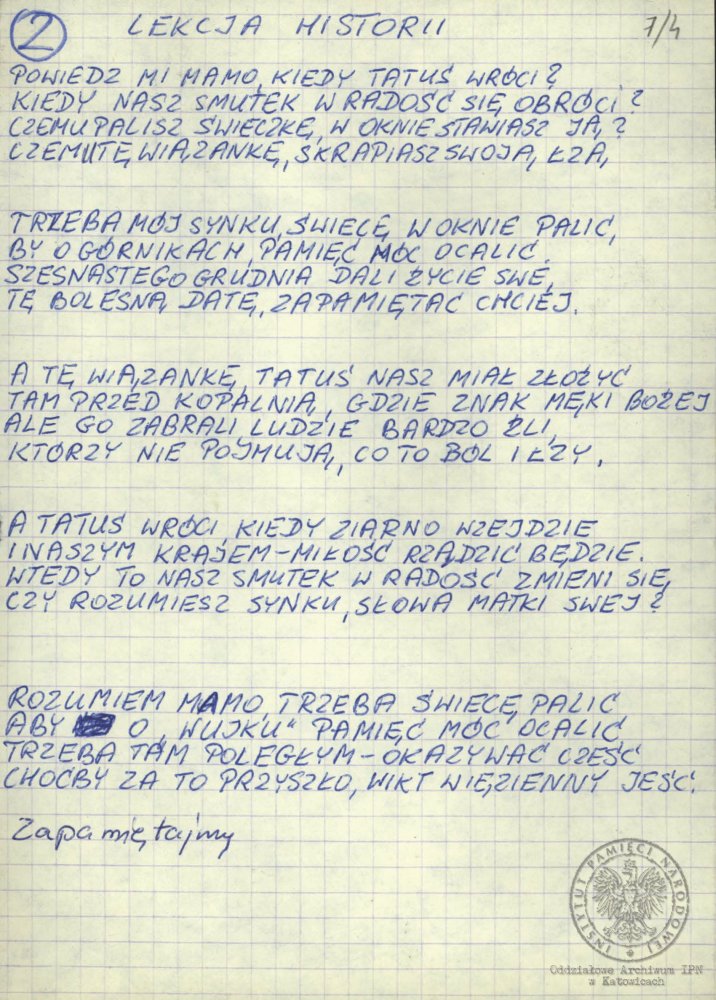 2
LEKCJA HISTORII
7/4
POWIEDZ MI MAMO, KIEDY TATUŚ WRÓCI?
KIEDY NASZ SMUTEK W RADOŚĆ SIĘ OBRÓCI?
CZEMU PALISZ ŚWIECZKĘ, W OKNIE STAWIASZ JĄ?
CZEMU TĘ WIĄZANKĘ, SKRAPIASZ SWOJĄ ŁZĄ,
TRZEBA MÓJ SYNKU, ŚWIECĘ W OKNIE PALIĆ,
BY O GÓRNIKACH, PAMIĘĆ MÓC OCALIĆ.
SZESNASTEGO GRUDNIA DALI ŻYCIE SWE,
TĘ BOLESNĄ DATĘ, ZAPAMIĘTAĆ CHCIEJ.
A TĘ WIĄZANKĘ, TATUŚ NASZ MIAŁ ZŁOŻYĆ
TAM PRZED KOPALNIĄ, GDZIE ZNAK MĘKI BOŻEJ
ALE GO ZABRALI LUDZIE BARDZO ŹLI,
KTÓRZY NIE POJMUJĄ, CO TO BÓL I ŁZY.
A TATUŚ WRÓCI, KIEDY ZIARNO WZEJDZIE
I NASZYM KRAJEM - MIŁOŚĆ RZĄDZIĆ BĘDZIE.
WTEDY TO NASZ SMUTEK W RADOŚĆ ZMIENI SIĘ,
CZY ROZUMIESZ SYNKU, SŁOWA MATKI SWEJ?
ROZUMIEM MAMO, TRZEBA ŚWIECĘ PALIĆ
ABY O „WUJKU" PAMIĘĆ MÓC OCALIĆ
TRZEBA TAM POLEGŁYM - OKAZYWAĆ CZEŚĆ
CHOĆBY ZA TO PRZYSZŁO, WIKT WIĘZIENNY JEŚĆ.
Zapamiętajmy
INSTYTUT PAMIĘCI NARODOWEJ
Oddziałowe Archiwum IPN
w Katowicach